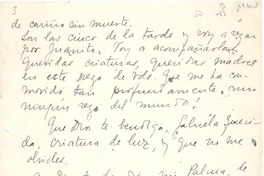 3
de cariño sin muerte.
Son las cinco de la tarde y voy a rezar
por Juanito. Voy a acompañarlas
queridas criaturas, queridas madres
en este rezo de Uds. que me ha con-
movido tan profundamente, como
ningún rezo del mundo!
Que Dios te bendiga, Gabriela queri-
da, criatura de luz, y que no me
olvides.
mi Palma, de